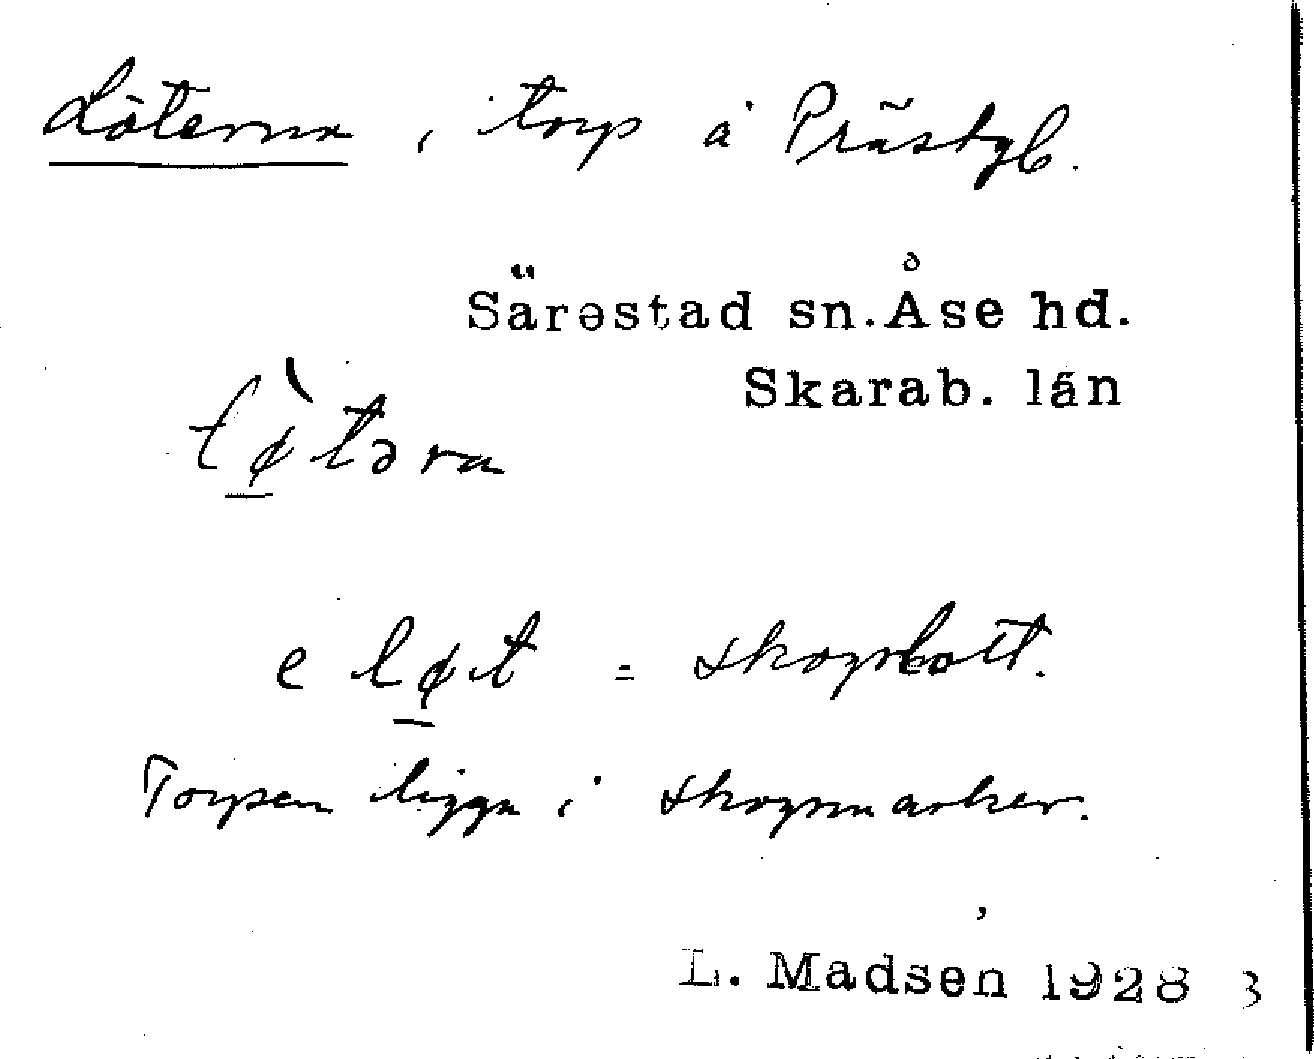 Löterna, torp å Prästgb.
Särestad sn. Åse hd.
Skarab. län
lø̀təra
e løt = skogslott.
Torpen ligga i skogsmarker.
L. Madsen 1928